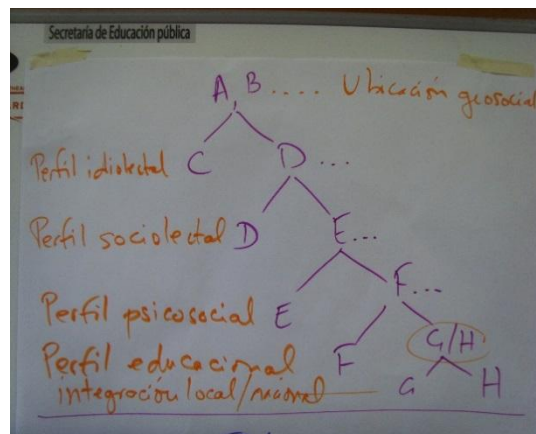 Secretaría de Educación pública
A, B ..... Ubicación geosocial
Perfil idiolectal C D ...
Perfil sociolectal D E...
Perfil psicosocial E F...
Perfil educacional F G/H
integración local/nacional G H